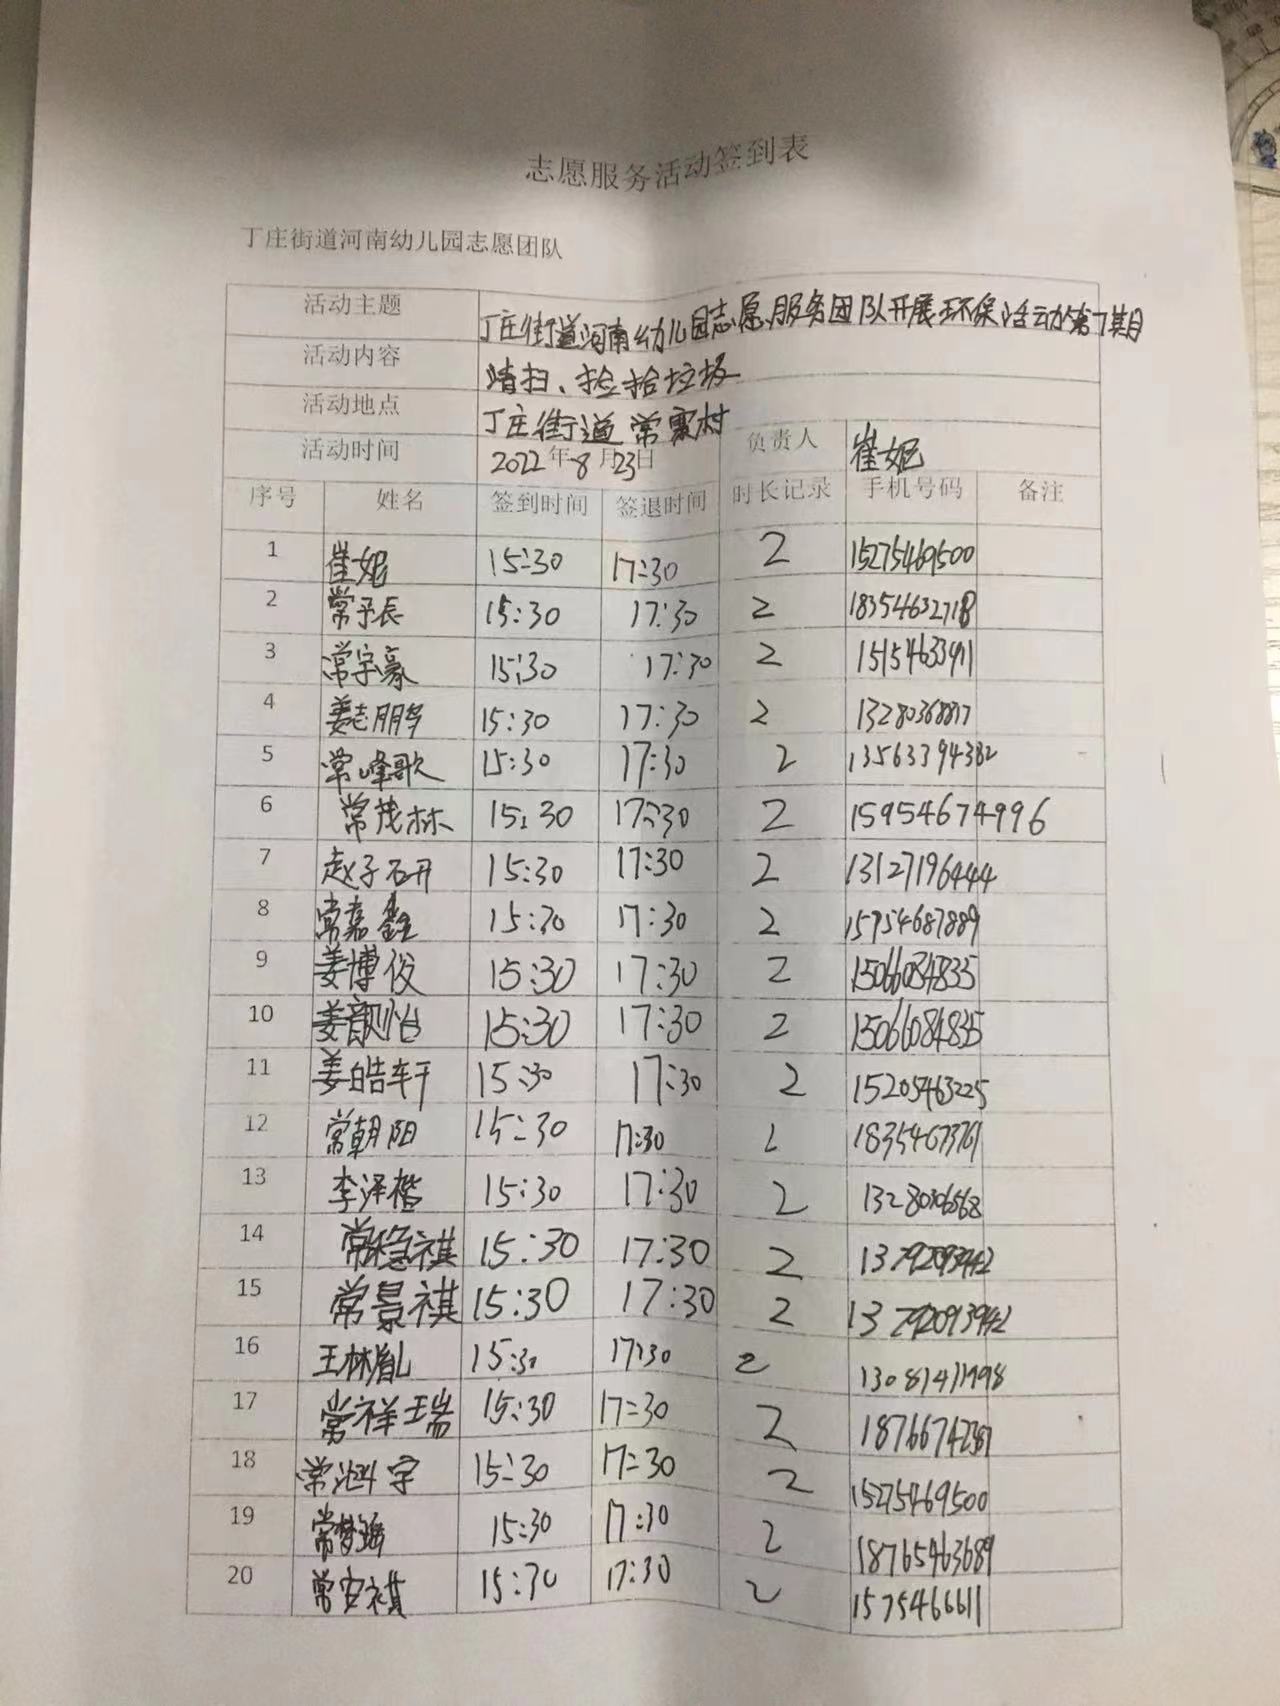 志愿服务活动签到表
丁庄街道河南幼儿园志愿团队
活动主题 丁庄街道河南幼儿园志愿服务团队开展环保活动第7期
活动内容 清扫、捡拾垃圾
活动地点 丁庄街道常家村
活动时间 2022年8月23日 负责人 崔妮
序号 姓名 签到时间 签退时间 时长记录 手机号码 备注
1 崔妮 15:30 17:30 2 15275469500
2 常予辰 15:30 17:30 2 18354632718
3 常宇豪 15:30 17:30 2 15154633911
4 姜志鹏 15:30 17:30 2
5 常峰歌 15:30 17:30 2 13563394382
6 常茂林 15:30 17:30 2 15954674996
7 赵子研 15:30 17:30 2 13127196444
8 常嘉鑫 15:30 17:30 2 15954687889
9 姜博俊 15:30 17:30 2 15066084835
10 姜颜怡 15:30 17:30 2 15066084835
11 姜皓轩 15:30 17:30 2 15205463225
12 常朝阳 15:30 17:30 2 18354673761
13 李泽楷 15:30 17:30 2
14 常稳祺 15:30 17:30 2
15 常景祺 15:30 17:30 2
16 王林胤 15:30 17:30 2
17 常祥瑞 15:30 17:30 2
18 15:30 17:30 2 15275469500
19 常梦瑶 15:30 17:30 2 18765463689
20 常安祺 15:30 17:30 2 1575466611